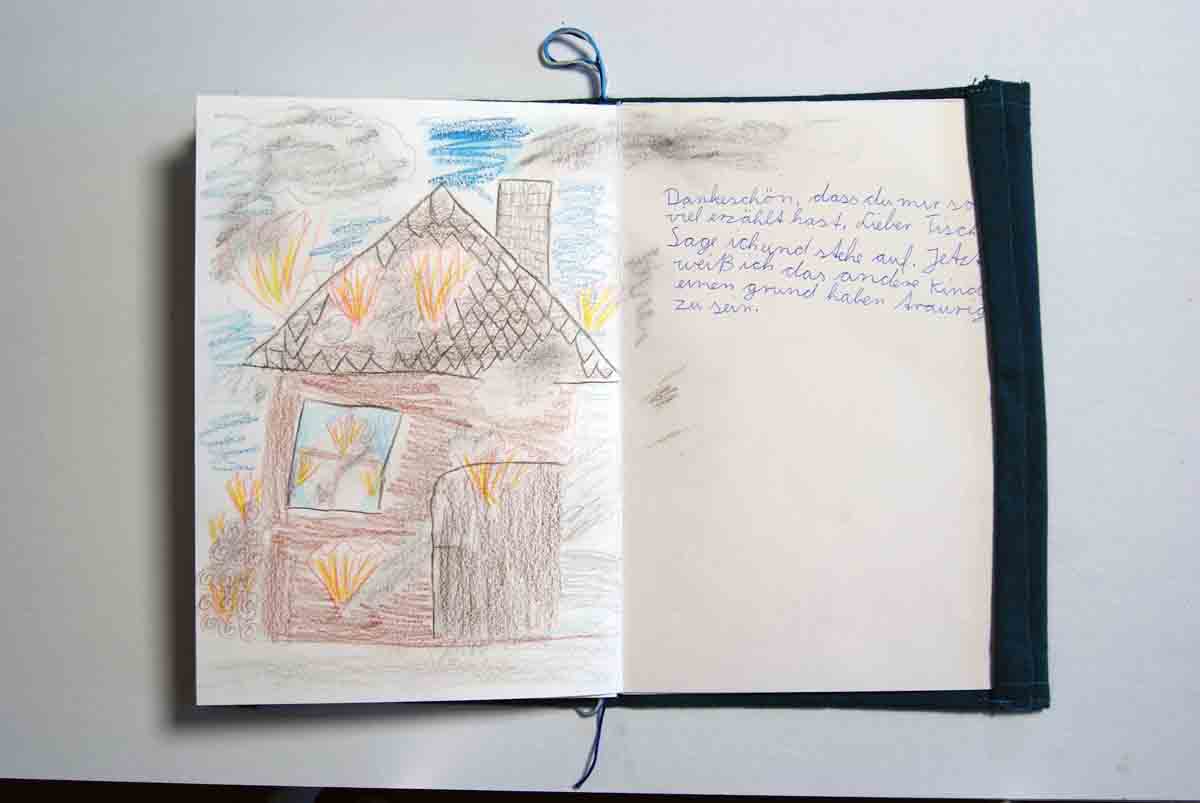 Dankeschön, dass du mir so
viel erzählt hast, Lieber Tisch
Sage ich und stehe auf. Jetzt
weiß ich das andere Kind
einen grund haben traurig
zu sein.